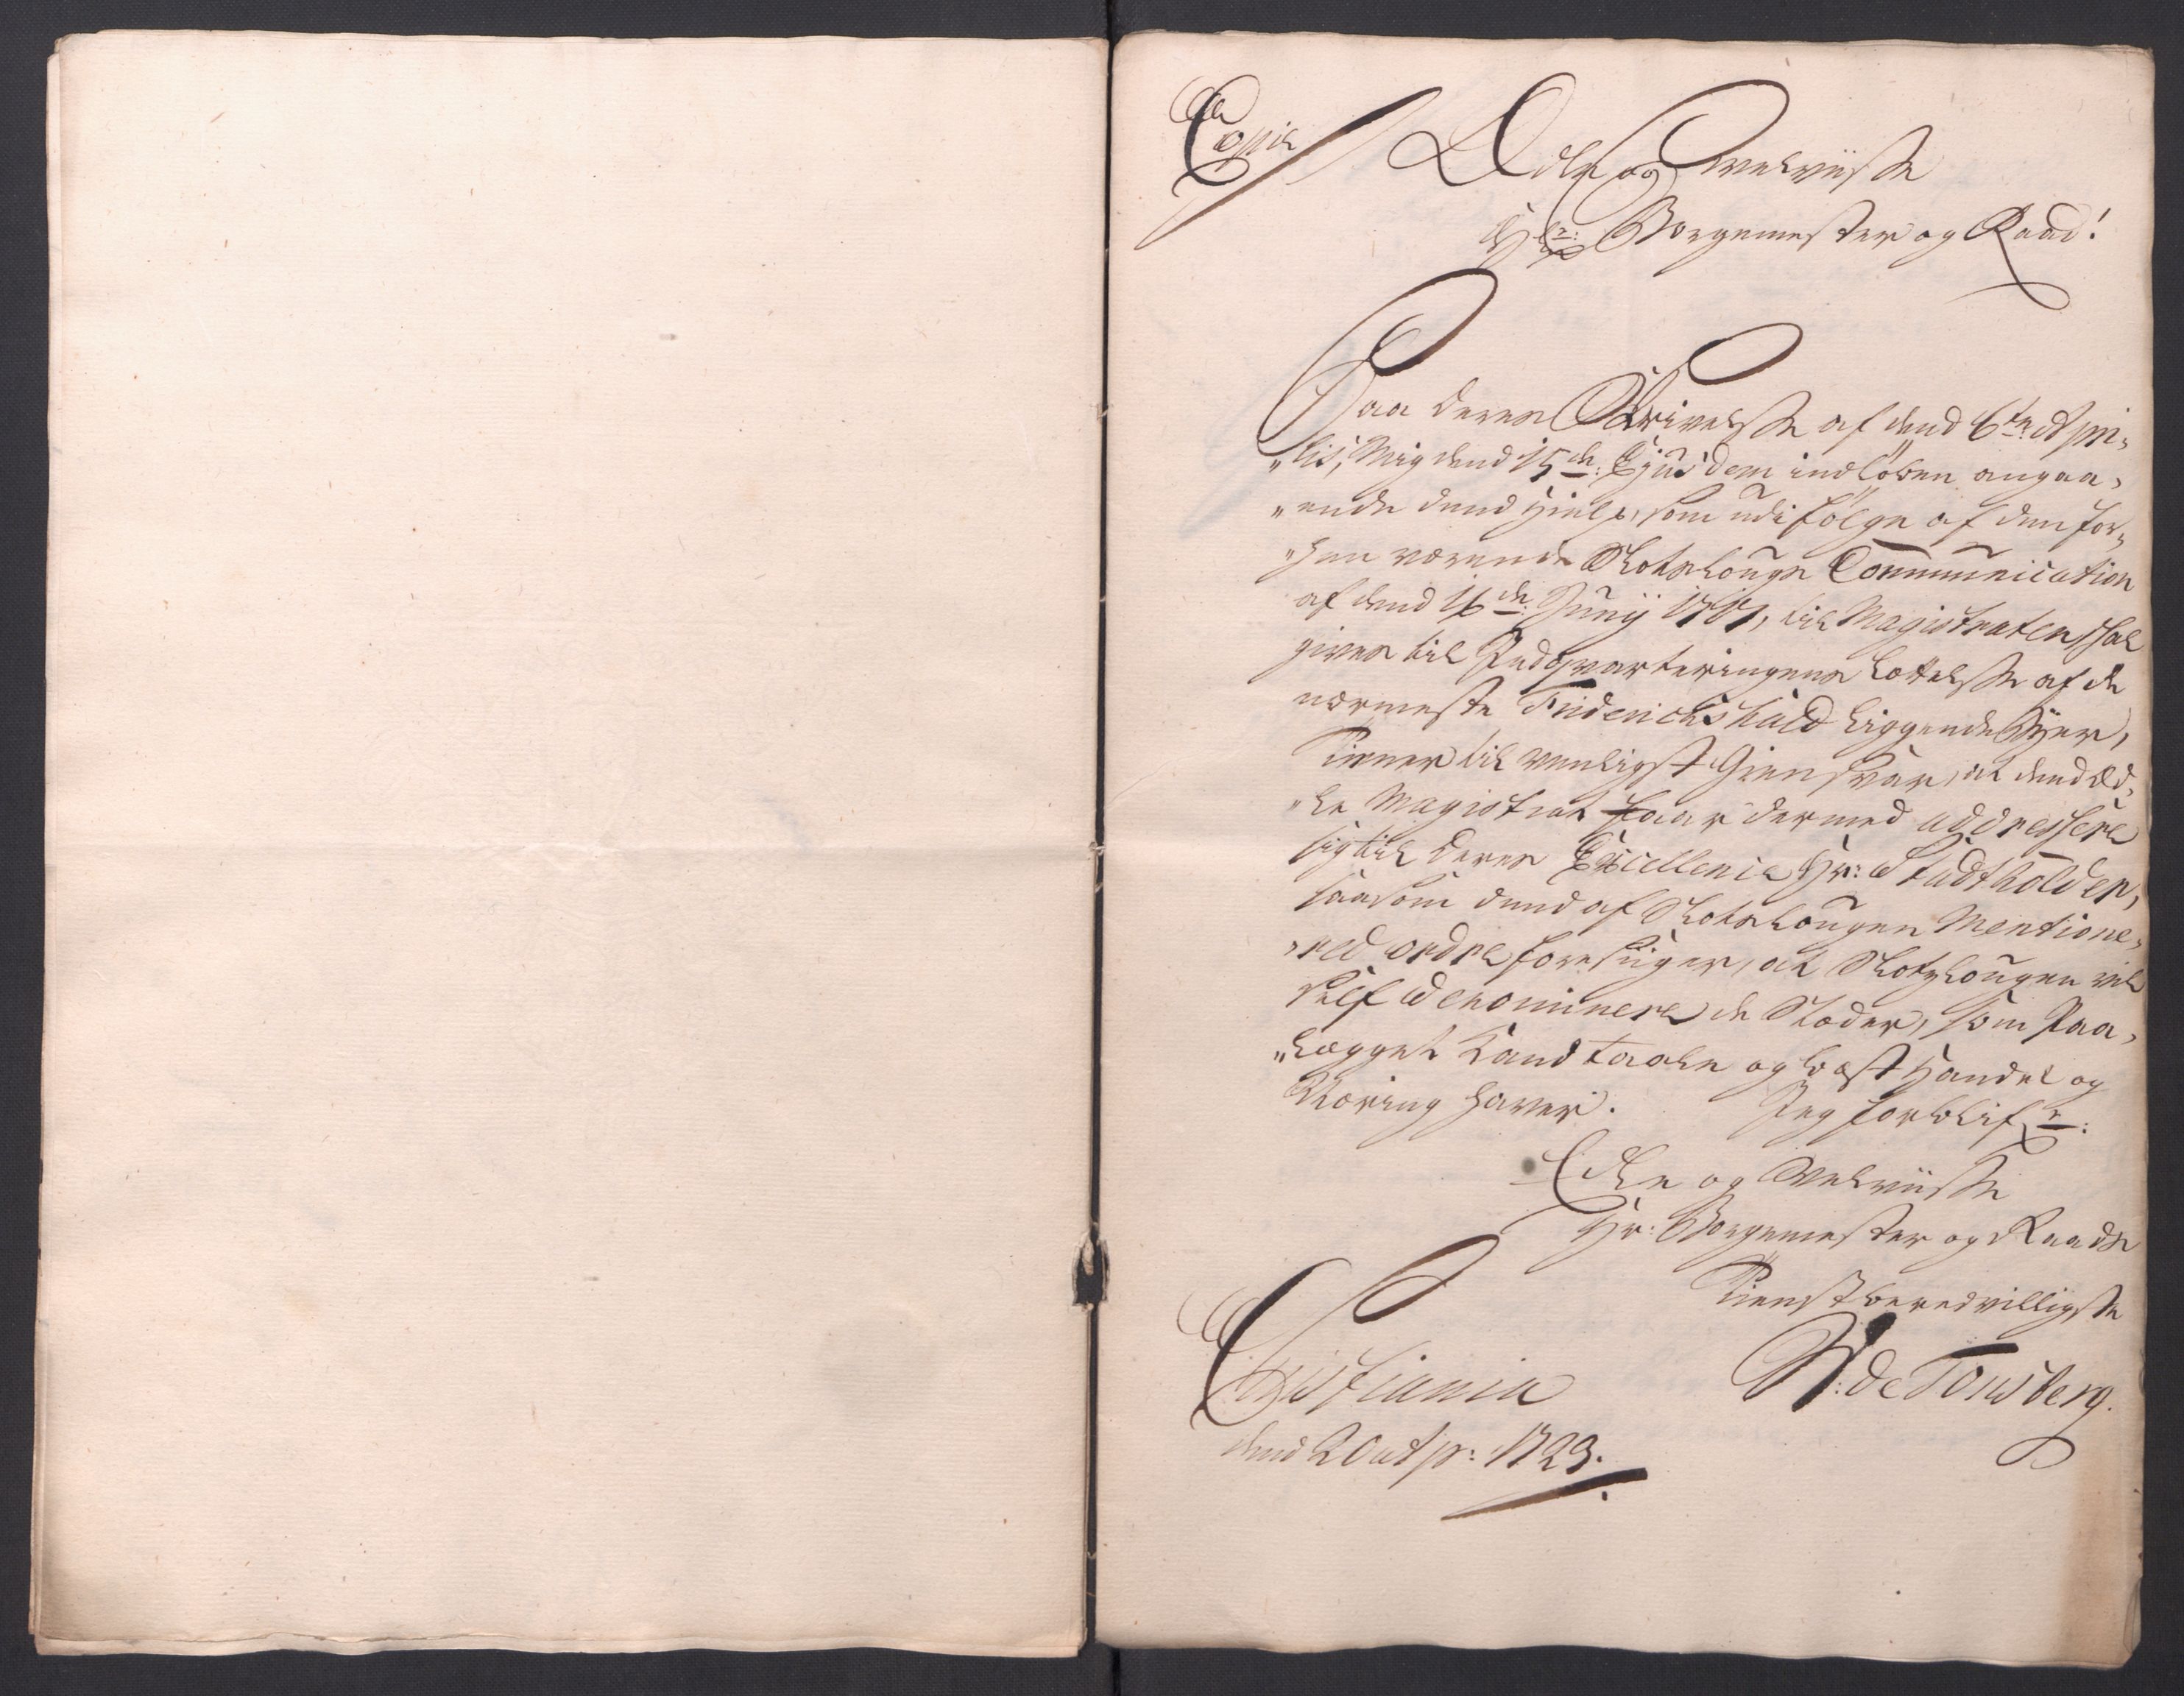 Copie
Edle og Velviise
Hr: Borgemester og Raad!
Paa deres Skrivelse af dend 6te Apri-
"lis, Mig dend 15de: Ejusdem indløben angaa-
"ende dend Hielp, som udi følge af den for-
"hen værende Slotslougs Communication
af dend 16de: Junij 1717, til Magistraten skal
gives til Indqvarteringens Lættelse af de
nærmeste Friderichshald liggende Byer,
Tiener til venligst Giensvar, at dend Æd-
"le Magistrat faar dermed addressere
sig til deres Excellence Hr: Stadtholder,
saasom dend af Slotslougen Mentione-
"red ordre foresiiger, at Slotslougen vil
self denominere de Stæder, som Paa-
"lægget kand taale og best Handel og
Næring haver. Jeg forblifr:
Edle og Velviise
Hr: Borgemester og Raads
Tienstberedvilligste
W: de Tonsberg.
Christiania
dend 20 Ap: 1723.